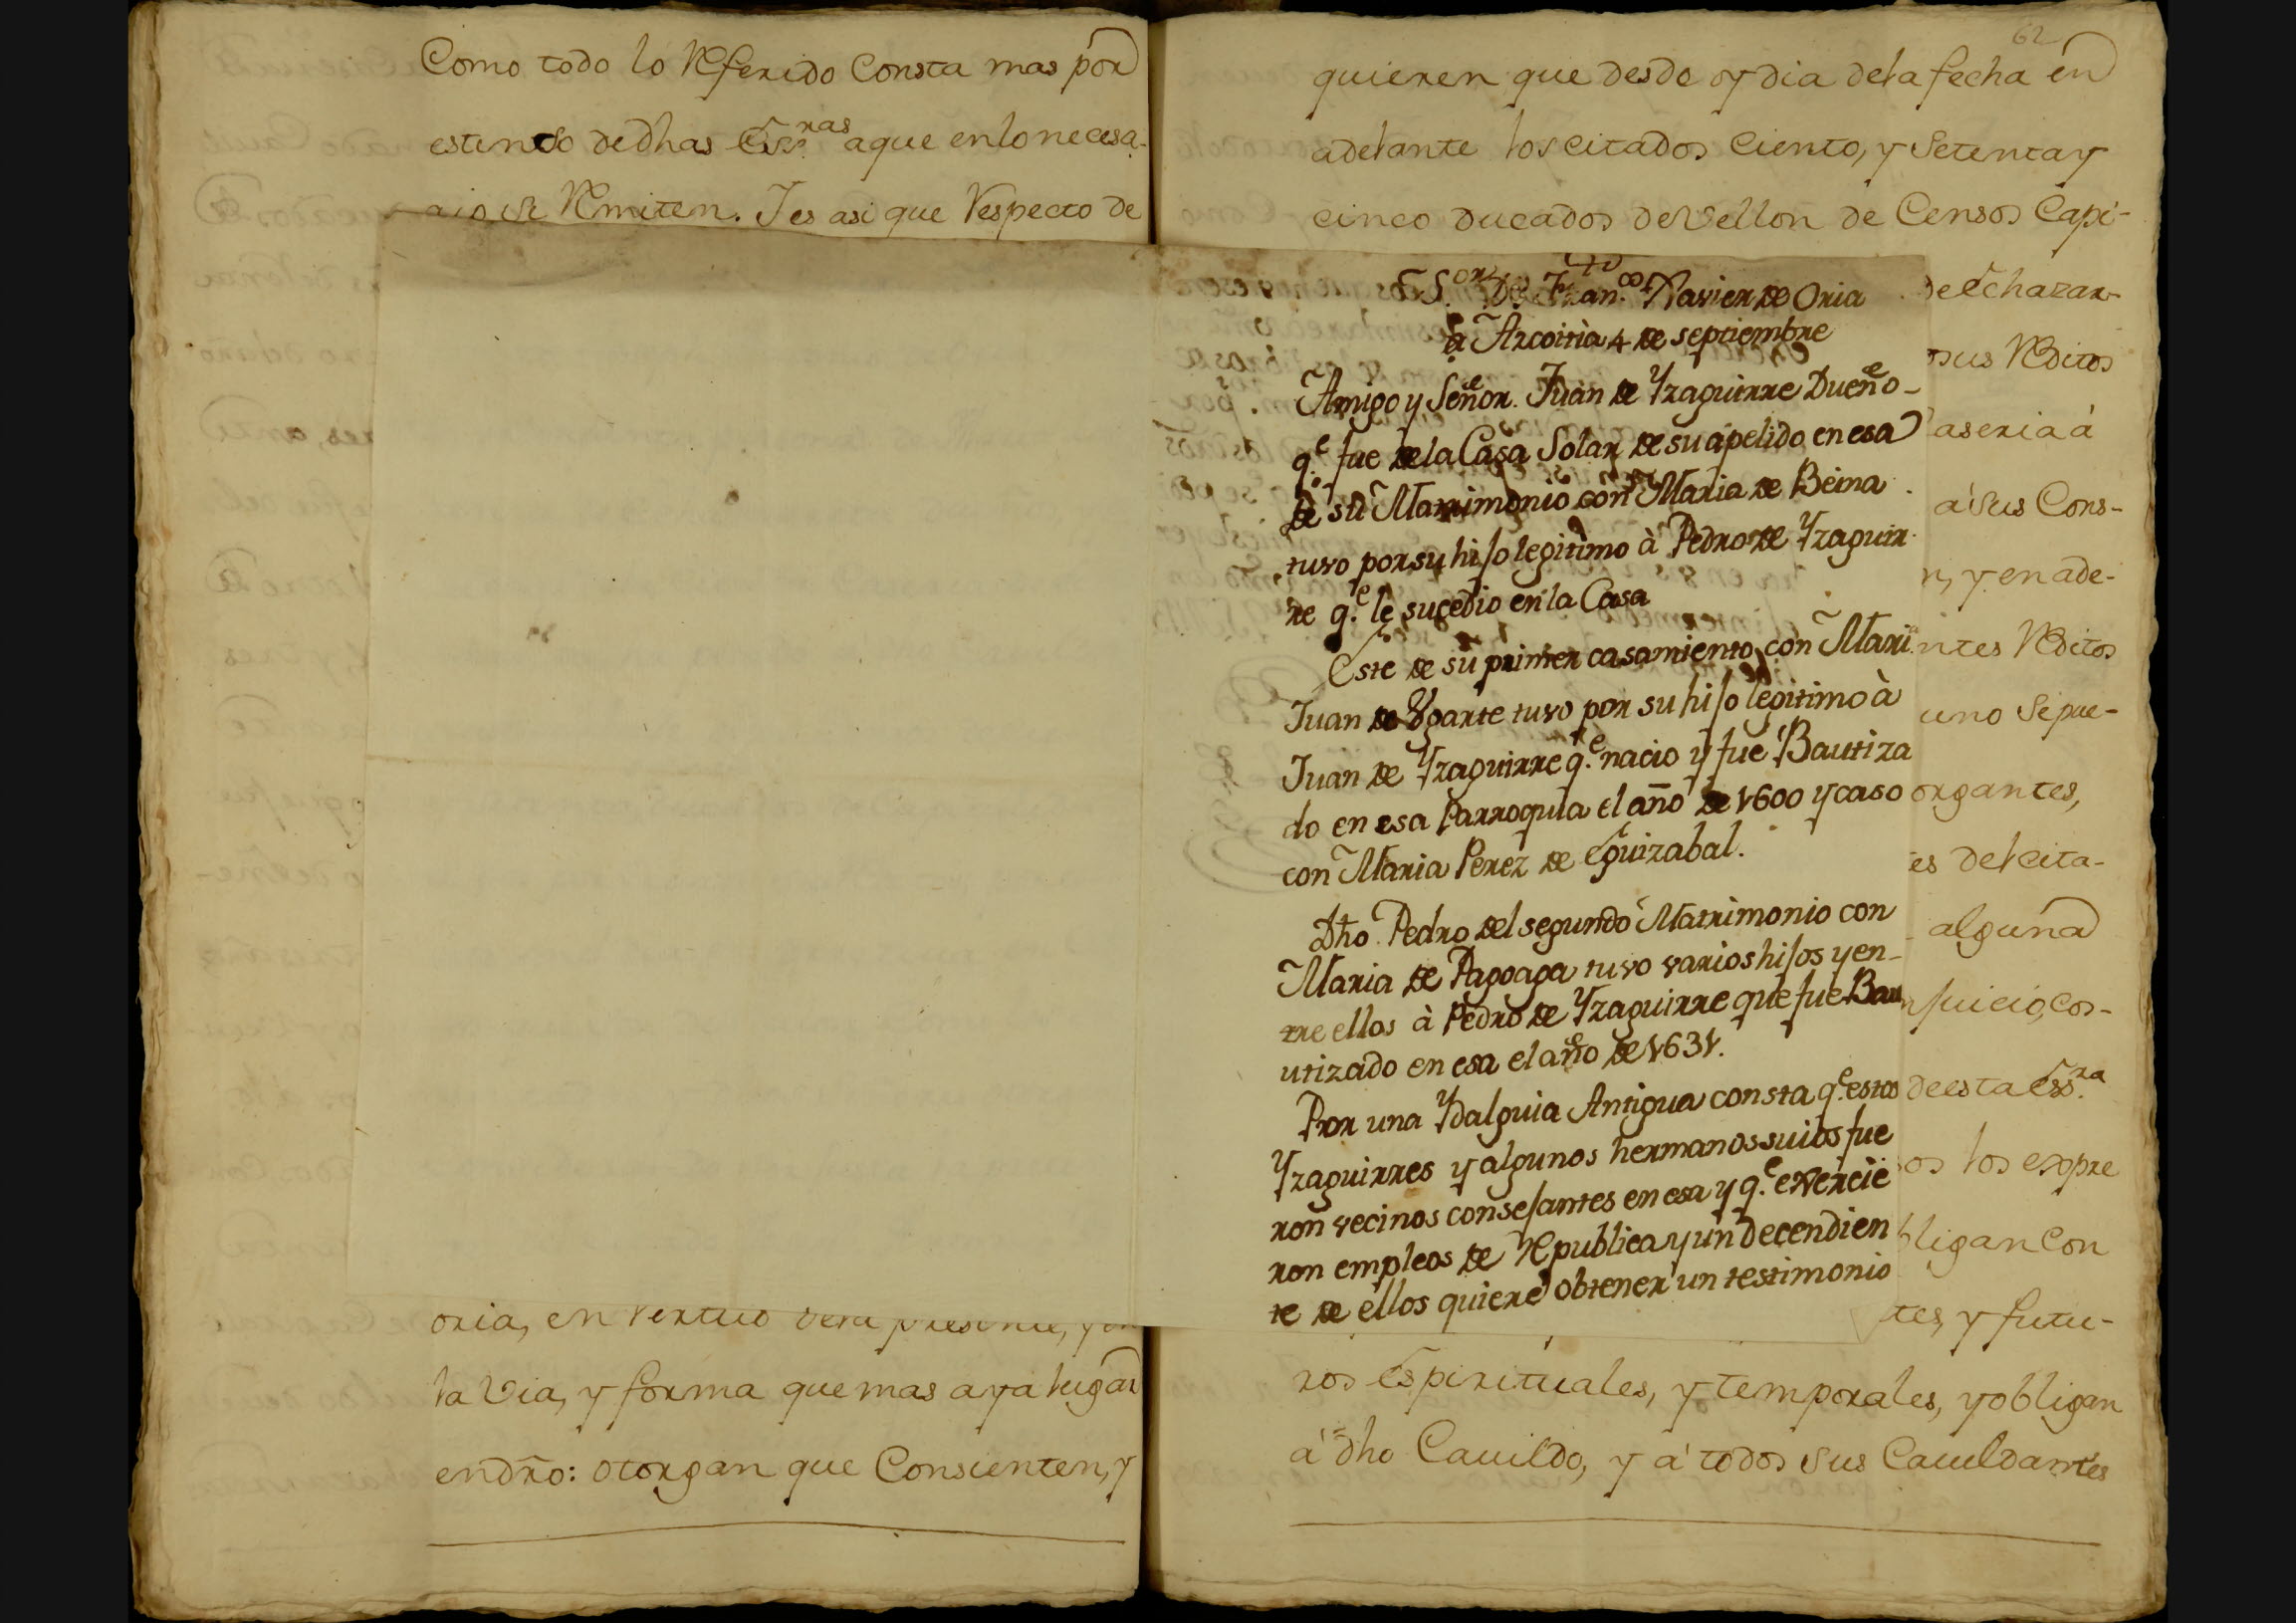 Como todo lo Referido Consta mas por
estenso de dhas Ess.ras a que en lo necesa-
rio se Remiten. Y es asi que Respecto de
oria, en vertud de la presente, y en
la Via, y forma que mas aya lugar
en dr̃o: otorgan que Consienten, y
62
quieren que desde oy dia de la fecha en
adelante los citados Ciento, y Setenta y
cinco ducados de Vellon de Censos Capi-
de echazar-
sus Reditos
aseria á
a sus Cons-
n, y en ade-
ntes Reditos
uno se pue-
organtes,
es del cita-
alguna
juicio, cos-
de esta Ess.ra
os los expre
bligan con
tes, y futu-
ros Espirituales, y temporales, y obligan
á dho Cauildo, y á todos sus Cauildantes
S.or Dn. Fran.co Xavier de Oria
à Azcoitia 4 de septiembre
Amigo y Señor. Juan de Yzaguirre Dueño
q.e fue de la Casa Solar de su apelido en esa
de su Matrimonio con Maria de Beina
tuvo por su hijo legitimo à Pedro de Yzaguir
re q.e le sucedio en la Casa
Este de su primer casamiento con Mari
Juan de Ugarte tuvo por su hijo legitimo à
Juan de Yzaguirre q.e nacio y fue Bautiza
do en esa Parroquia el año de 1600 y caso
con Maria Perez de Eguizabal.
Dho Pedro del segundo Matrimonio con
Maria de Pagoaga tuvo varios hijos y en-
tre ellos à Pedro de Yzaguirre que fue Bau
utizado en esa el año de 1631.
Por una Ydalguia Antigua consta q.e estos
Yzaguirres y algunos hermanos suios fue
ron vecinos consejantes en esa y q.e exercie
ron empleos de Republica y un decendien
te de ellos quiere obtener un testimonio